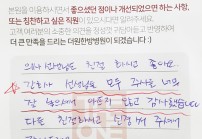 본원을 이용하시면서 좋으셨던 점이나 개선되었으면 하는 사항,
또는 칭찬하고 싶은 직원이 있으시다면 알려주세요.
고객 여러분의 소중한 의견에 귀 기울이고 반영하여
더 큰 만족을 드리는 더원한방병원이 되겠습니다 :)
의사 선생님도 친절 하시고 좋아요.
간호사 선생님도 모두 주사를 너무
잘 놓으셔서 아프지 않고 감사했습니다
다른 친절하시고 친절해 주셔서